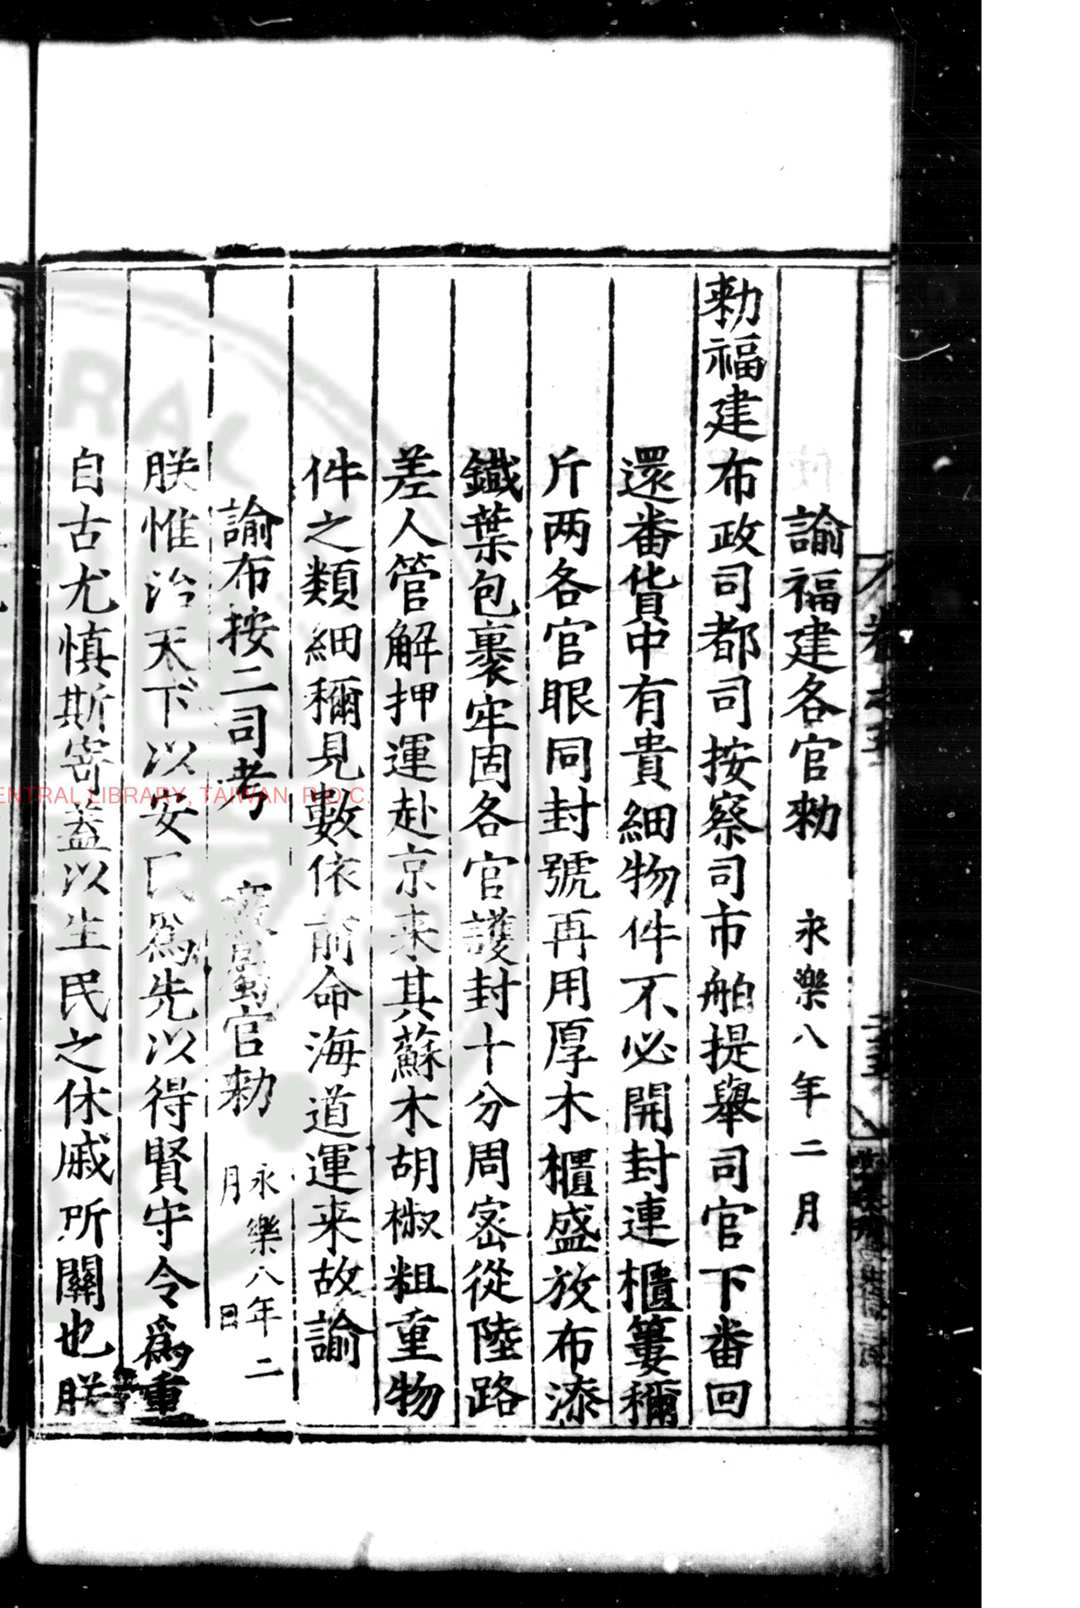 諭福建各官勑 永樂八年二月
勑福建布政司都司按察司市舶提舉司官下番回
還番貨中有貴細物件不必開封連櫃簍稱
斤两各官眼同封號再用厚木櫃盛放布漆
鐡葉包裹牢固各官護封十分周宻從陸路
差人管解押運赴京来其蘇木胡椒粗重物
件之類細稱見數依前命海道運来故諭
諭布按二司考 官勑 永樂八年二月 日
朕惟治天下以安民爲先以得賢守令爲重
自古尤慎斯寄蓋以生民之休戚所關也朕
卷之五
ENTRAL LIBRARY, TAIWAN, R.O.C.